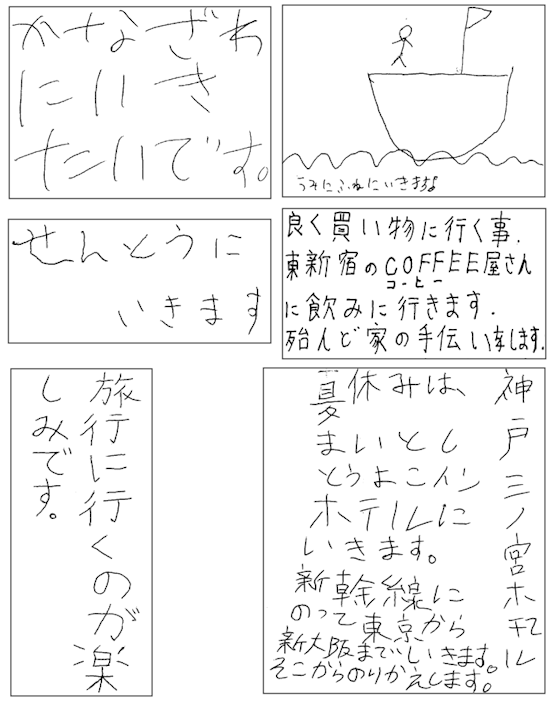 かなざわ
にいき
たいです。
うみにふねにいきますよ
せんとうに
いきます
良く買い物に行く事.
東新宿のCOFFEE屋さん
コーヒー
に飲みに行きます.
殆んど家の手伝いをします.
旅行に行くのが楽
しみです。
神戸三ノ宮ホテル
夏休みは、
まいとし
とうよこイン
ホテルに
いきます。
新幹線に
のって東京から
新大阪までいきます。
そこからのりかえします。